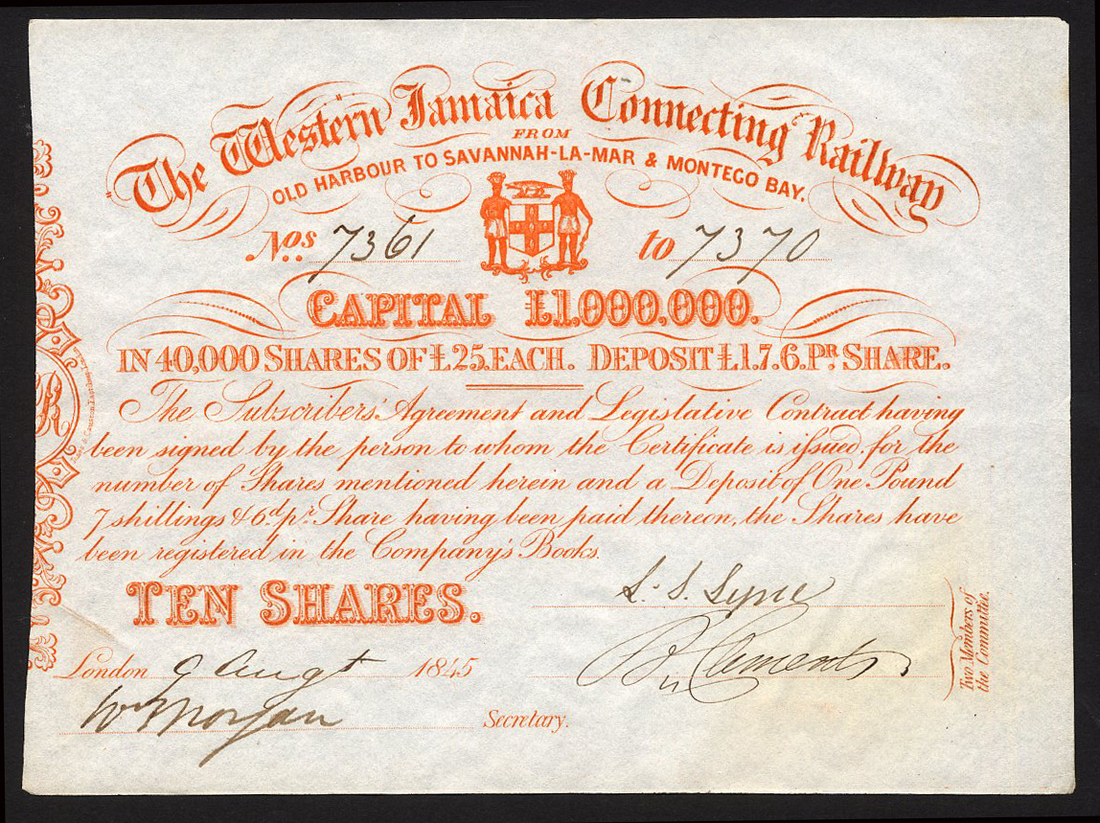 "The Western Jamaica Connecting Railway
FROM
OLD HARBOUR TO SAVANNAH-LA-MAR & MONTEGO BAY.
Nos. 7361 to 7370
CAPITAL £1,000,000.
IN 40,000 SHARES OF £25. EACH. DEPOSIT £1.7.6. PR SHARE.
The Subscribers' Agreement and Legislative Contract having
been signed by the person to whom the Certificate is issued for the
number of Shares mentioned herein and a Deposit of One Pound
7 shillings & 6d. pr. Share having been paid thereon, the Shares have
been registered in the Company's Books.
TEN SHARES.
Two Members of
the Committee.
London 9 Augt 1845
Wm Morgan Secretary.